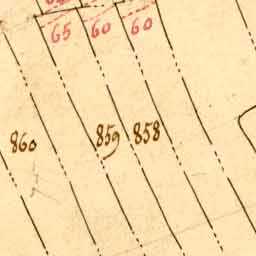 65 60 60
860 859 858